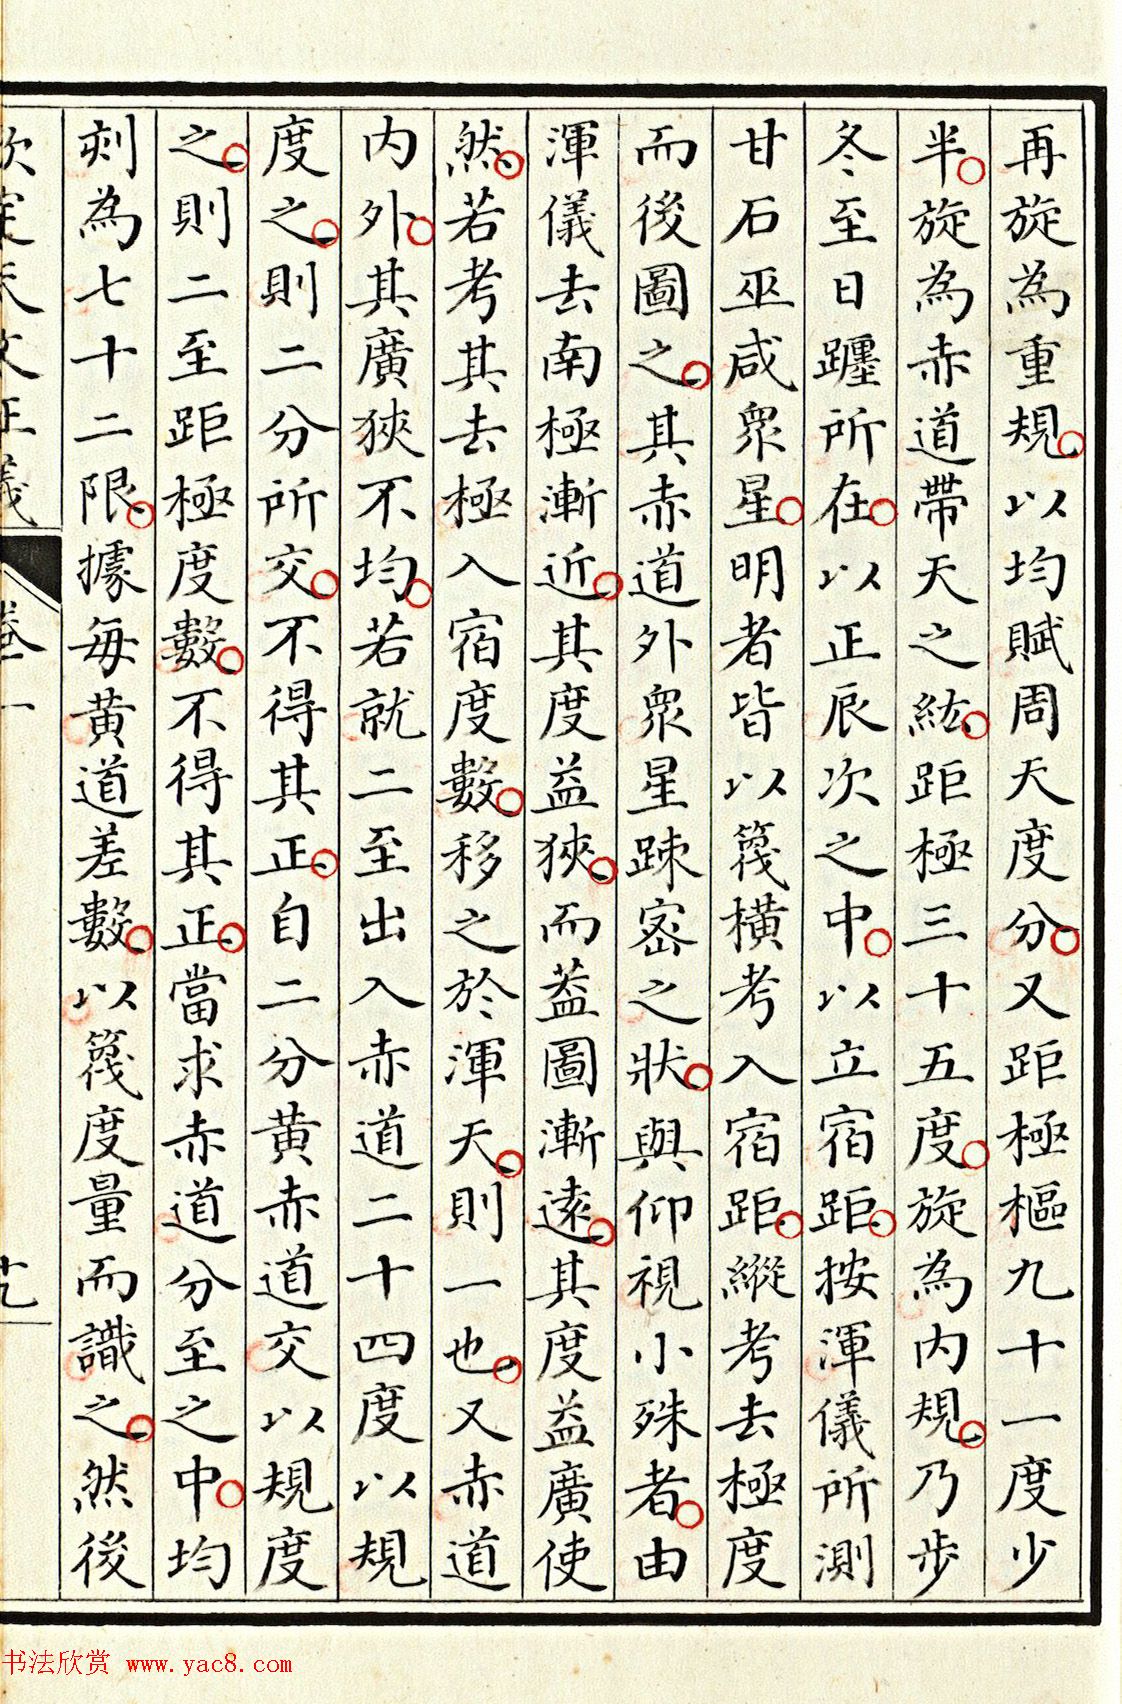 再旋為重規以均賦周天度分又距極樞九十一度少
半旋為赤道帶天之紘距極三十五度旋為内規乃步
冬至日躔所在以正辰次之中以立宿距按渾儀所測
甘石巫咸衆星明者皆以篾橫考入宿距縱考去極度
而後圖之其赤道外衆星踈宻之狀與仰視小殊者由
渾儀去南極漸近其度益狹而葢圖漸逺其度益廣使
然若考其去極入宿度數移之於渾天則一也又赤道
内外其廣狹不均若就二至出入赤道二十四度以規
度之則二分所交不得其正自二分黄赤道交以規度
之則二至距極度數不得其正當求赤道分至之中均
刺為七十二限據每黄道差數以篾度量而識之然後
欽定天文正義
卷一
书法欣赏 www.yac8.com